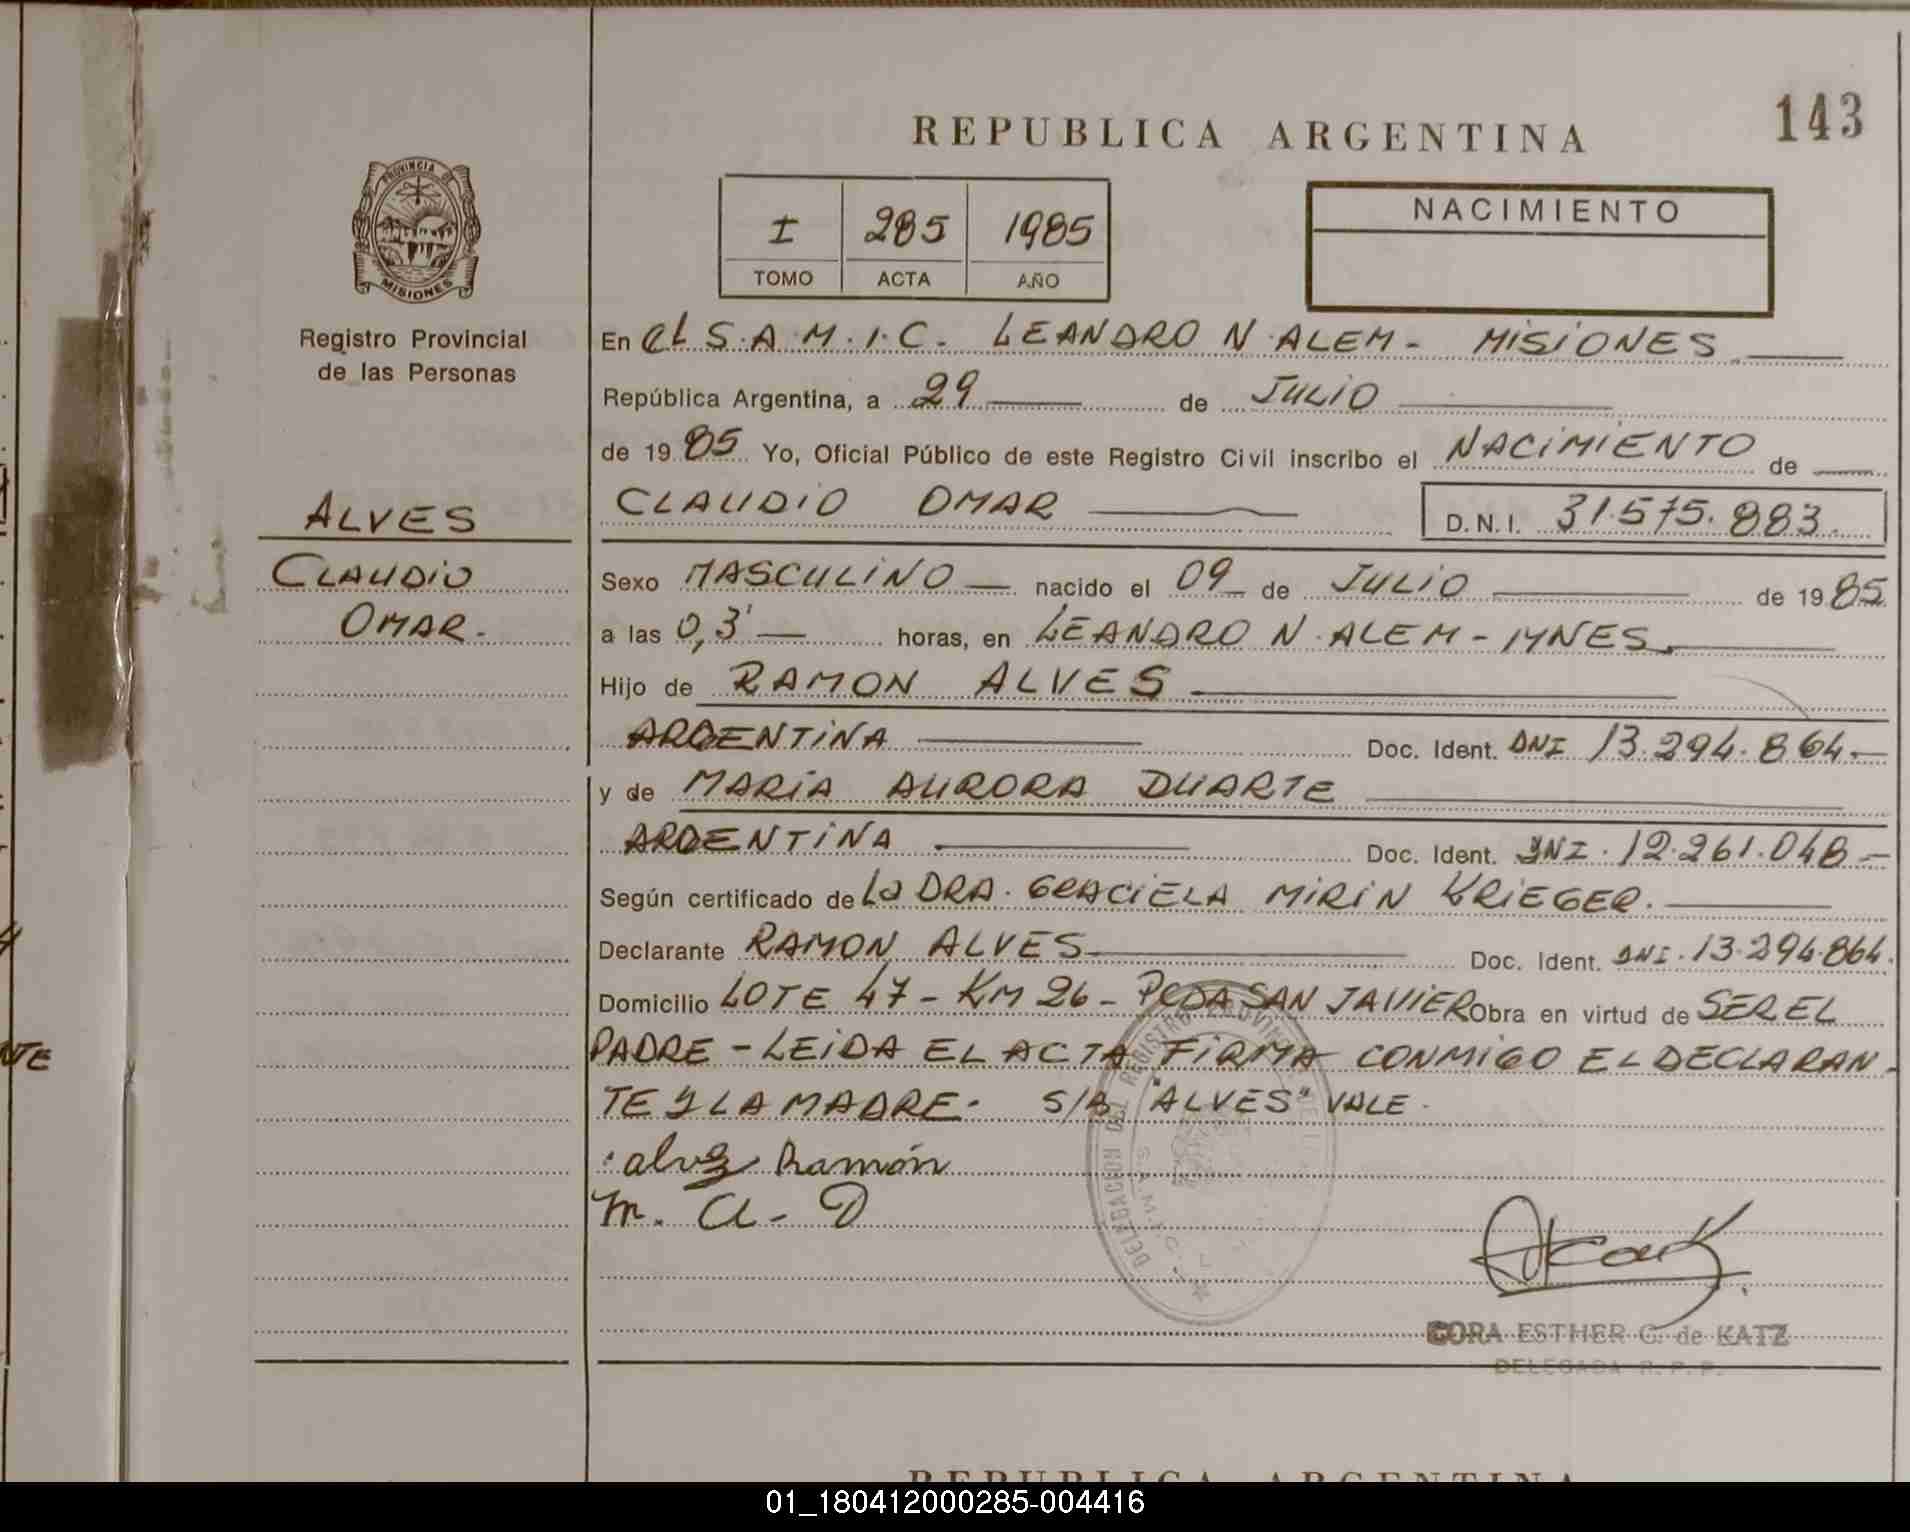 143
REPUBLICA ARGENTINA
PROVINCIA DE
MISIONES
Registro Provincial
de las Personas
I 285 1985
TOMO ACTA AÑO
NACIMIENTO
En el S.A.M.I.C. LEANDRO N. ALEM - MISIONES
República Argentina, a 29 de JULIO
de 1985 Yo, Oficial Público de este Registro Civil inscribo el NACIMIENTO de
CLAUDIO OMAR D.N.I. 31.575.883.
ALVES
CLAUDIO
OMAR.
Sexo MASCULINO nacido el 09 de JULIO de 1985
a las 0,3' horas, en LEANDRO N. ALEM - MNES.
Hijo de RAMON ALVES
ARGENTINA Doc. Ident. DNI 13.294.864.-
y de MARIA AURORA DUARTE
ARGENTINA Doc. Ident. DNI. 12.261.048 -
Según certificado de La DRA. GRACIELA MIRIN KRIEGER.
Declarante RAMON ALVES Doc. Ident. DNI. 13.294.864.
Domicilio LOTE 47 - KM 26 - PCDA SAN JAVIER Obra en virtud de SER EL
PADRE - LEIDA EL ACTA FIRMA CONMIGO EL DECLARAN-
TE Y LA MADRE. S/B "ALVES" VALE.
alvez Ramón
M. A. D
DELEGACION DEL REGISTRO PROVIN
S.A.M.I.C.
CORA ESTHER C. de KATZ
DELEGADA R.P.P.
NTE
REPUBLICA ARGENTINA
01_180412000285-004416